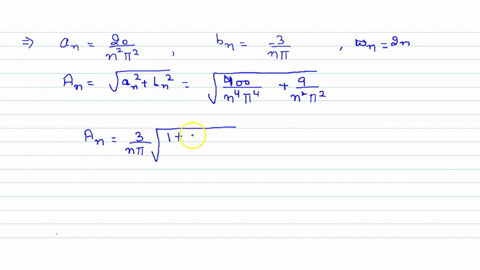 ⇒ aₙ = 20/n²π² , bₙ = -3/nπ , wₙ = 2n
Aₙ = √(aₙ² + bₙ²) = √(400/n⁴π⁴ + 9/n²π²)
Aₙ = 3/nπ √(1 + ·